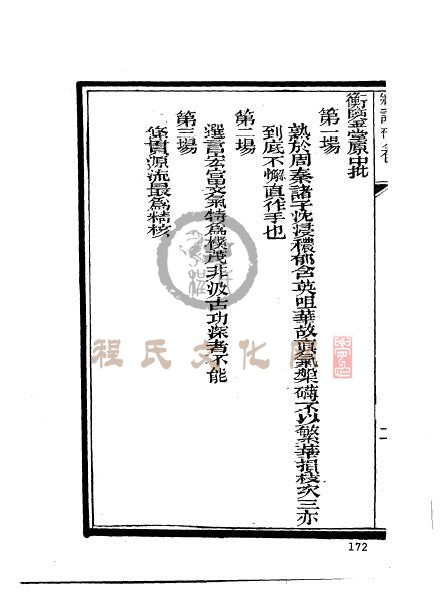 衡鑒堂原中批
第一場
熟於周秦諸子沈浸穠郁含英咀華故真氣槃礴不以繁華損枝次三亦
到底不懈直作手也
第二場
選言宏富文氣特為樸茂非汲古功深者不能
第三場
條貫源流最為精核
程氏文化
172